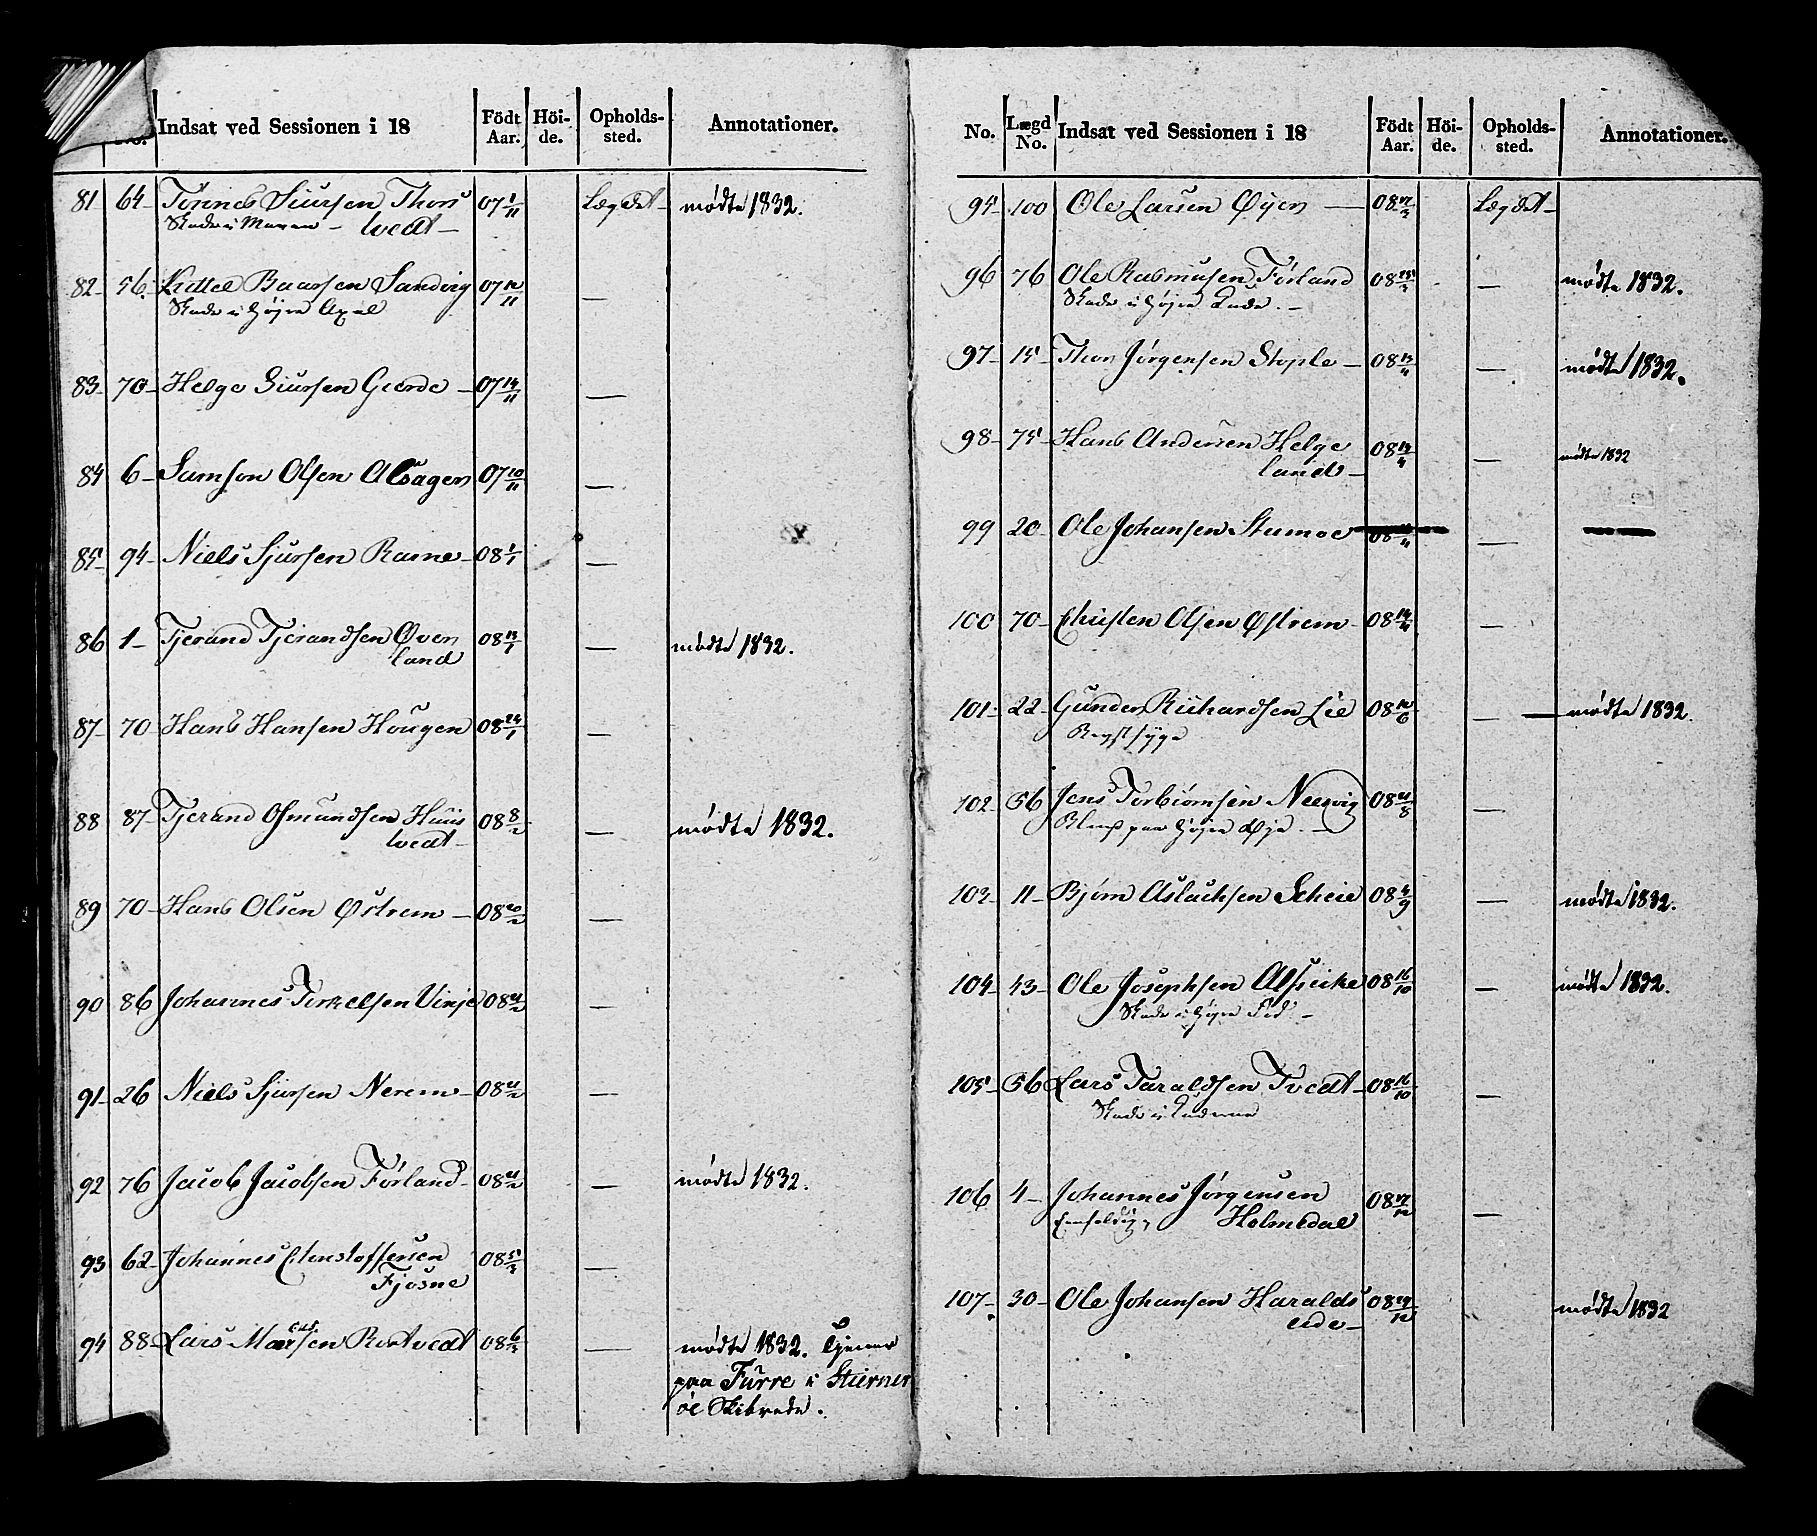 No. Indsat ved Sessionen i 18 Födt Aar. Höi-de. Opholds-sted. Annotationer.
81 64 Tönnes Siursen Thors 07 1/11 Lægdet mødte 1832.
Skade i Maven tvedt
82 56 Kittel Baarsen Sandvig 07 12/11 —
Skade i høyre Axel
83 70 Helge Siursen Gierde 07 14/11 —
84 6 Samson Olsen Alsagen 07 10/11 —
85 94 Niels Sjursen Rame 08 1/1 —
86 1 Tjerand Tjerandsen Øver 08 13/1 — mødte 1832.
land
87 70 Hans Hansen Hougen 08 24/1 —
88 87 Tjerand Osmundsen Huus 08 8/2 — mødte 1832.
tvedt
89 70 Hans Olsen Østrem 08 20/2 —
90 86 Johannes Torkelsen Vinje 08 21/2 —
91 26 Niels Sjursen Nerem 08 21/2 —
92 76 Jacob Jacobsen Førland 08 21/2 — mødte 1832.
93 62 Johannes Christoffersen 08 5/3 —
Fjosne
94 88 Lars Larsen Rortvedt 08 6/3 — mødte 1832. tjener
paa Furre i Stierner
øe Skibrede.
No. Lægd No. Indsat ved Sessionen i 18 Födt Aar. Höi-de. Opholds-sted. Annotationer.
95 100 Ole Larsen Øyen 08 12/3 Lægdet
96 76 Ole Rasmusen Førland 08 25/3 — mødte 1832.
Skade i høyre
97 15 Thor Jørgensen Stople 08 13/4 — mødt 1832.
98 75 Hans Andersen Helge 08 13/4 — mødte 1832
land
99 20 Ole Johansen Stumoe 08 —
100 70 Christen Olsen Østrem 08 14/4 —
101 22 Gunder Richardsen Lie 08 10/6 — mødte 1832.
Brystsyge
102 56 Jens Torbiørnsen Neervig 08 21/8 —
paa høyre Øje
103 11 Bjørn Aslachsen Scheie 08 4/9 — mødte 1832.
104 43 Ole Josephsen Alsvike 08 16/10 — mødte 1832.
Skade i høyre Fod
105 56 Lars Taraldsen Tvedt 08 16/10 —
Skade i
106 4 Johannes Jørgensen 08 17/12 —
Eenfoldig, Holmedal
107 30 Ole Johansen Haralds 08 29/12 mødte 1832
eide